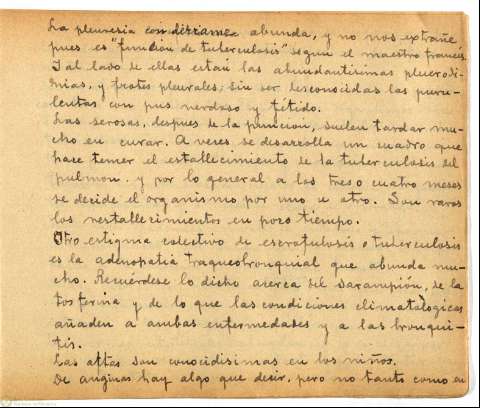 La pleuresia con derrame abunda, y no nos extrañe,
pues es "función de tuberculosis" segun el maestro frances.
Y al lado de ellas estan las abundantisimas pleurodi-
nias, y frotes pleurales; sin ser desconocidas las puru-
lentas con pus verdoso y fétido.
Las serosas, despues de la puncion, suelen tardar mu-
cho en curar. A veses se desarrolla un cuadro que
hase temer el establecimiento de la tuberculosis del
pulmon, y por lo general a los tres o cuatro meses
se decide el organismo por uno u otro. Son raros
los restablecimientos en poco tiempo.
Otro estigma colectivo de escrofulosis o tuberculosis
es la adenopatia traqueobronquial que abunda mu-
cho. Recuérdese lo dicho acerca del sarampión, de la
tos ferina y de lo que las condiciones climatologicas
añaden a ambas enfermedades y a las bronqui-
tis.
Las aftas son conocidisimas en los niños.
De anginas hay algo que desir, pero no tanto como en